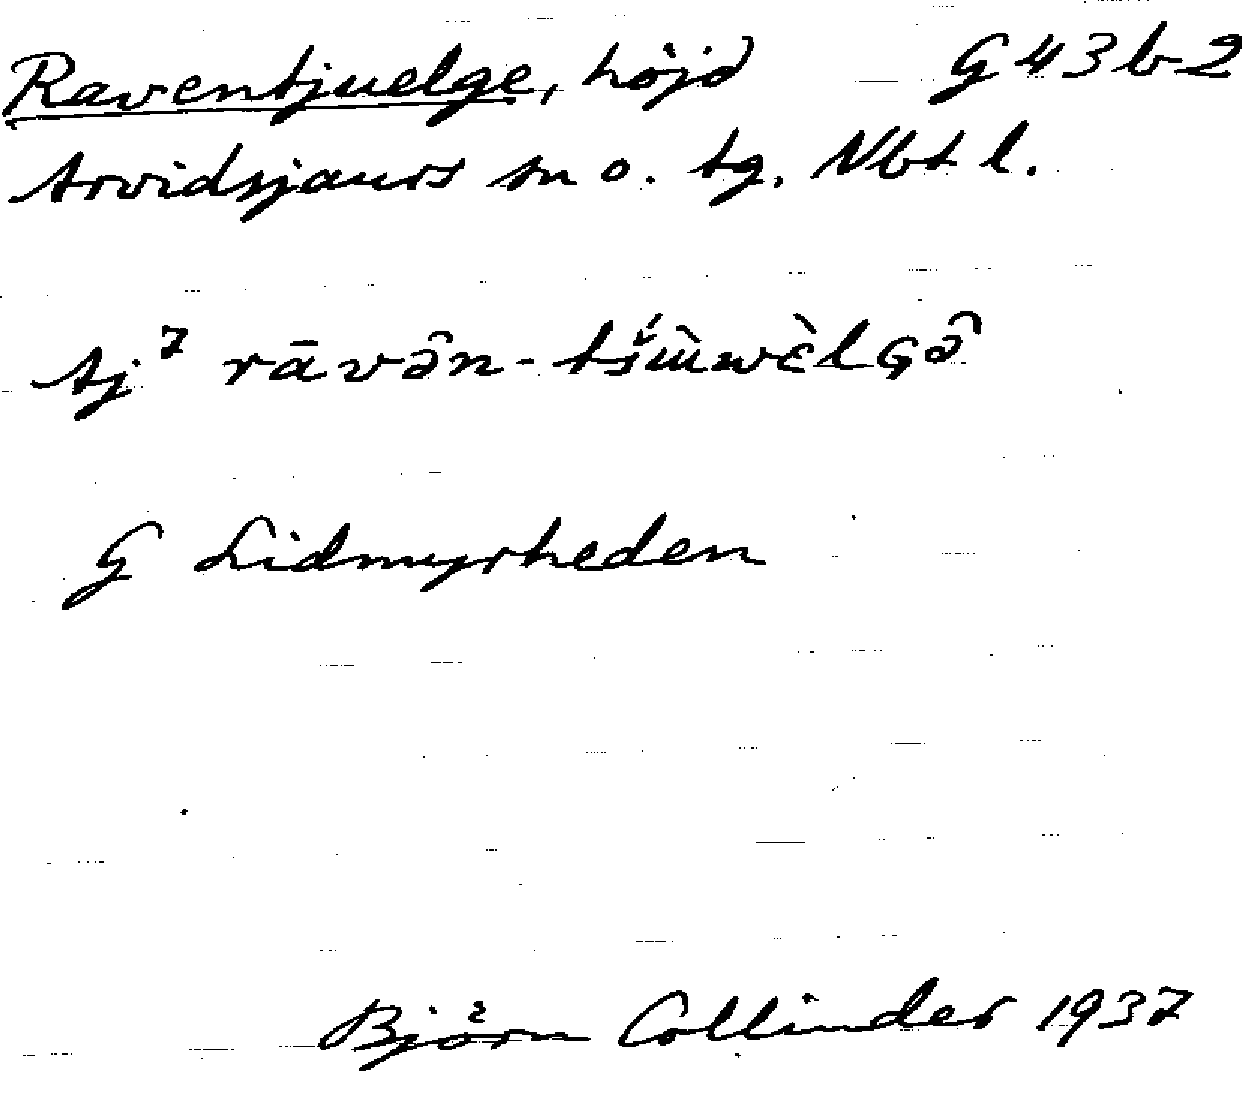 Raventjuelge, höjd G 43 b 2
Arvidsjaurs sn o. tg. Nbt l.
Aj⁷ rāvə̑n-tš́ɯ̀wɛ̀lGə̑
G Lidmyrheden
Björn Collinder 1937